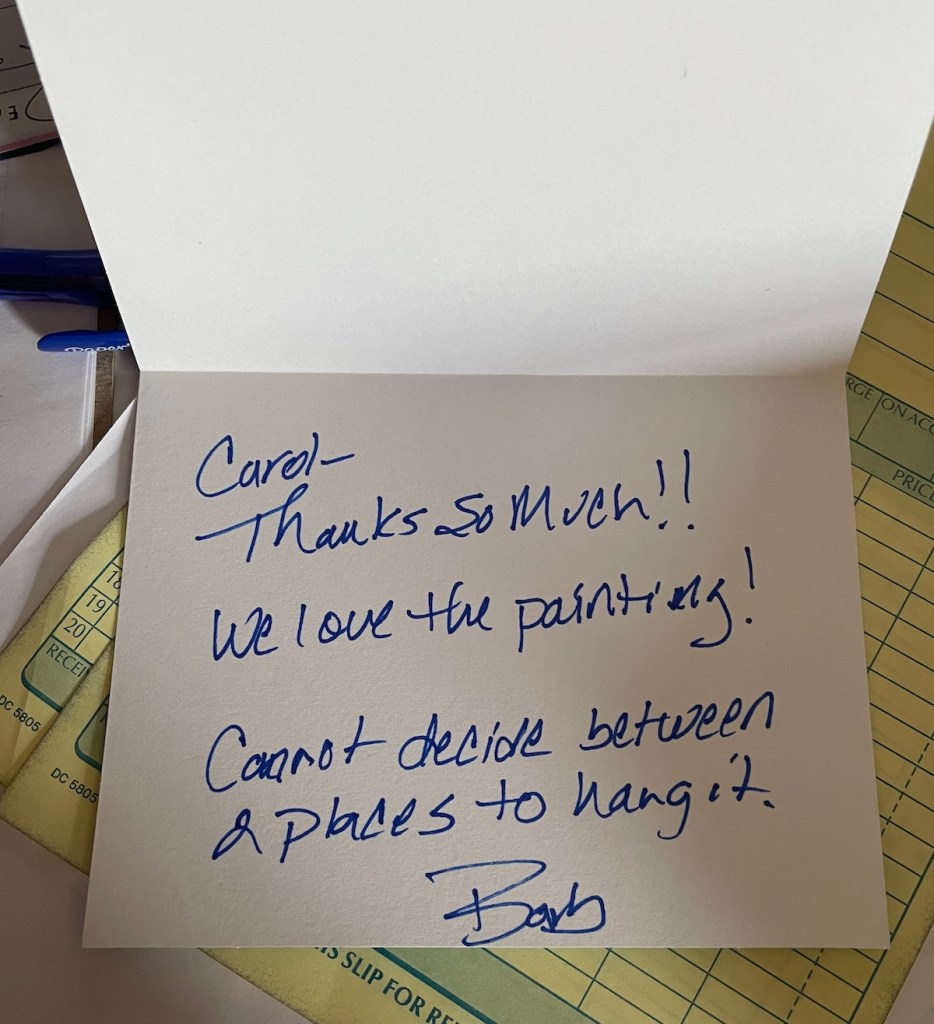 Carol-
Thanks so Much!!
We love the painting!
Cannot decide between
2 places to hang it.
Barb
RGE
ON ACC
PRICE
18
19
20
RECEI
DC 5805
DC 5805
IS SLIP FOR RE